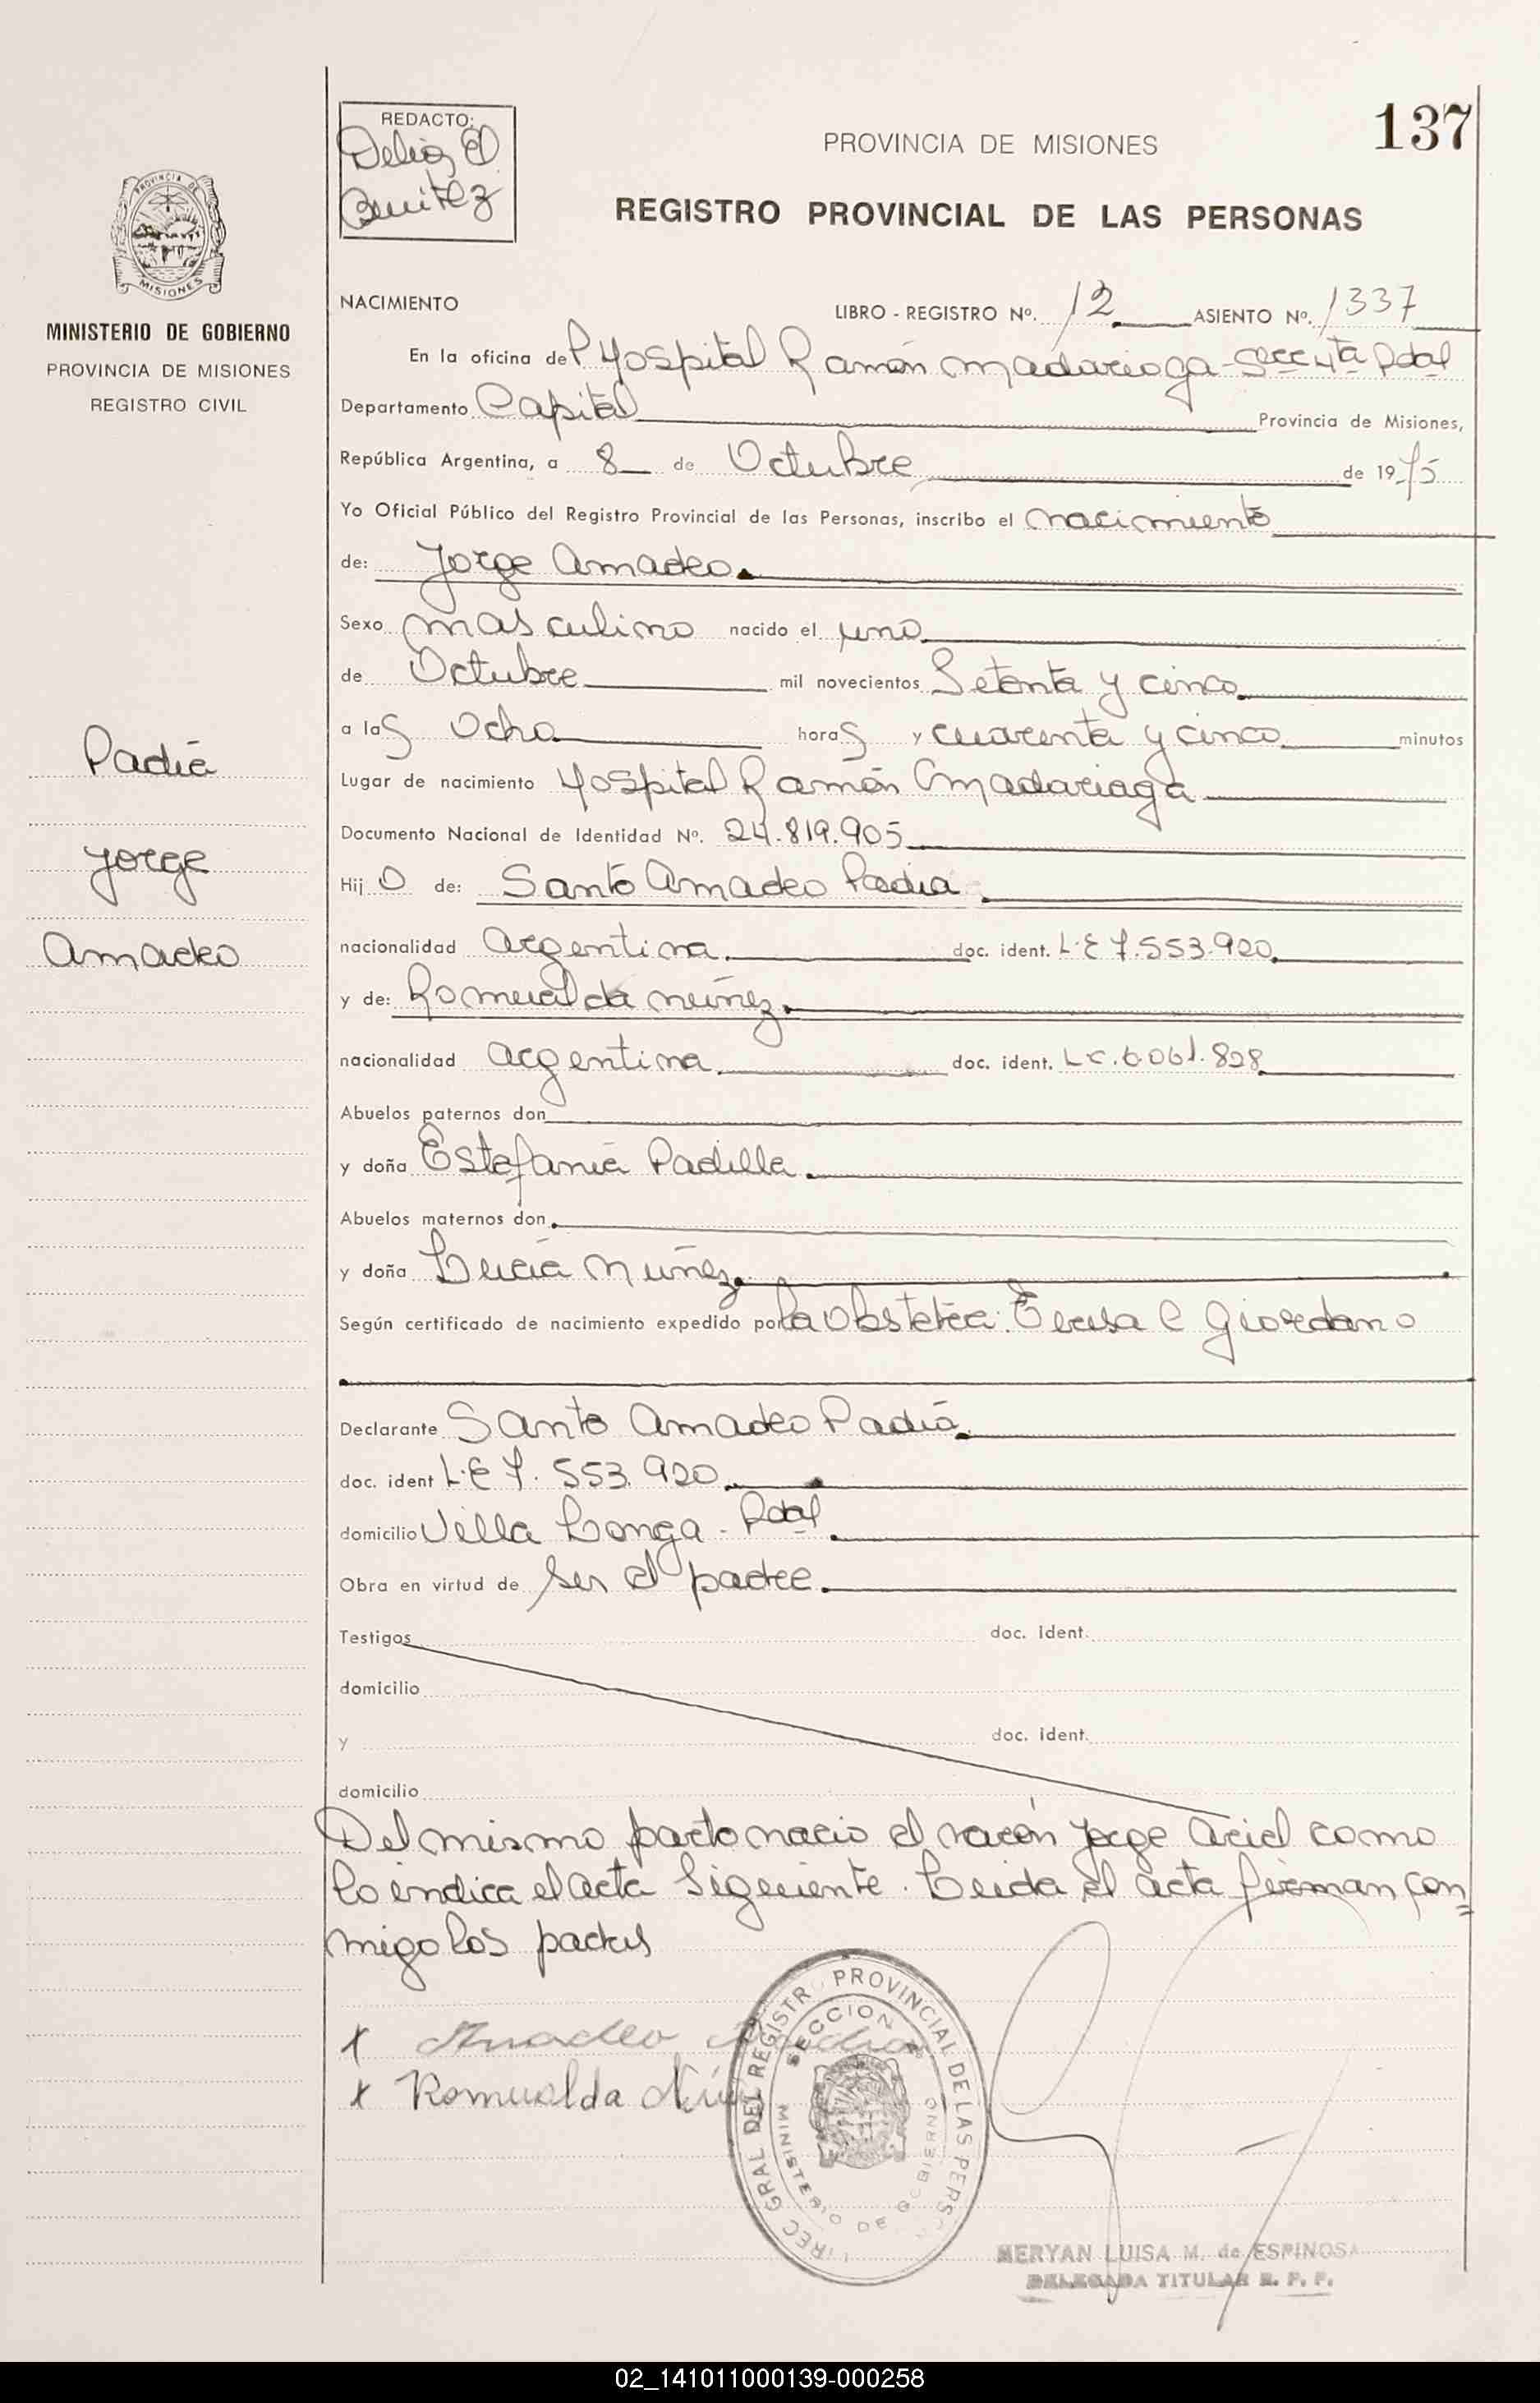 137
REDACTO:
Delia E
Benitez
PROVINCIA DE MISIONES
REGISTRO PROVINCIAL DE LAS PERSONAS
PROVINCIA DE
MISIONES
MINISTERIO DE GOBIERNO
PROVINCIA DE MISIONES
REGISTRO CIVIL
NACIMIENTO
LIBRO - REGISTRO Nº. 12 ASIENTO Nº. 1337
En la oficina del Hospital Ramón Madariaga - Secc 4ta Pdas
Departamento Capital Provincia de Misiones,
República Argentina, a 8 de Octubre de 1975
Yo Oficial Público del Registro Provincial de las Personas, inscribo el nacimiento
de: Jorge Amadeo
Sexo masculino nacido el uno
de Octubre mil novecientos Setenta y cinco
a las Ocho horas y cuarenta y cinco minutos
Lugar de nacimiento Hospital Ramón Madariaga
Documento Nacional de Identidad Nº. 24.819.905
Hijo de: Santo Amadeo Padia
nacionalidad argentina doc. ident. L.E 7.553.920
y de: Romualda nuñez
nacionalidad argentina doc. ident. L.C. 6.061.828
Abuelos paternos don
y doña Estefania Padilla
Abuelos maternos don
y doña Lucia Nuñez
Según certificado de nacimiento expedido por la Obstetra: Teresa C Giordano
Declarante Santo Amadeo Padia
doc. ident L.E 7.553.920
domicilio Villa Longa - Pdas
Obra en virtud de ser el padre
Testigos doc. ident.
domicilio
y doc. ident.
domicilio
Del mismo parto nacio el varón Jorge Ariel como
lo indica el acta siguiente. Leida el acta firman con=
migo los padres
x Amadeo Padia
x Romualda Núñ
DIREC GRAL DEL REGISTRO PROVINCIAL DE LAS PERSON
SECCION
MINISTERIO DE GOBIERNO
MERYAN LUISA M. de ESPINOSA
DELEGADA TITULAR R. P. P.
Padia
Jorge
Amadeo
02_141011000139-000258